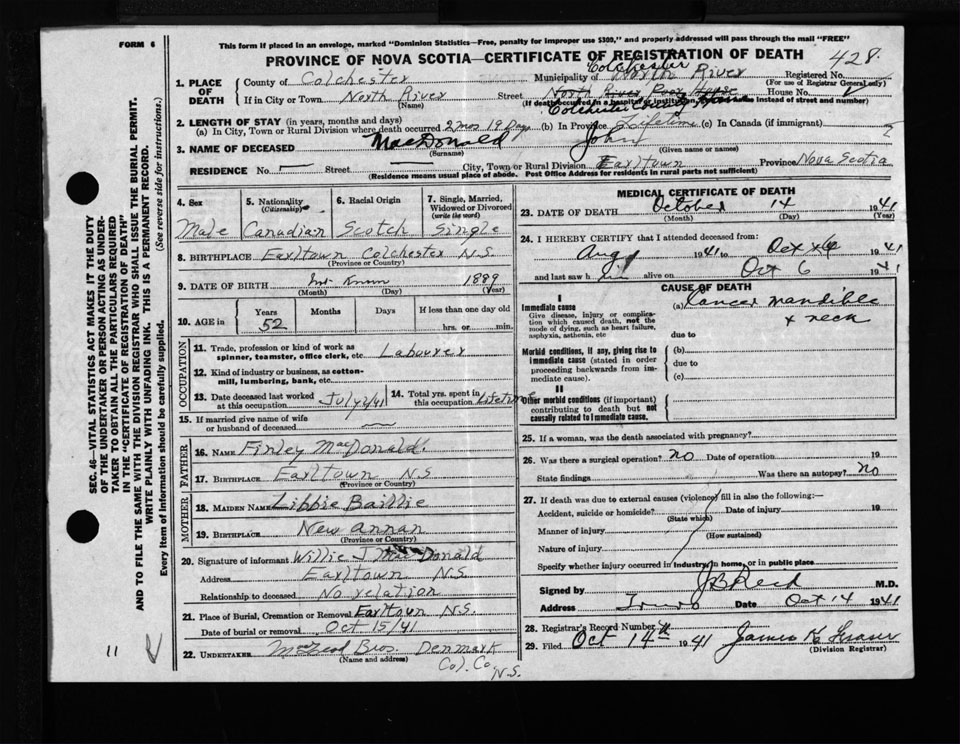 FORM 6
This form if placed in an envelope, marked "Dominion Statistics—Free, penalty for improper use $300," and properly addressed will pass through the mail "FREE"
PROVINCE OF NOVA SCOTIA—CERTIFICATE OF REGISTRATION OF DEATH
428
1. PLACE OF DEATH
County of Colchester
Colchester
Municipality of North River Registered No.
(For use of Registrar General only)
If in City or Town North River Street North River Poor House House No.
(Name) (If death occurred in a hospital or institution, give its name instead of street and number)
Colchester County
2. LENGTH OF STAY (in years, months and days)
(a) In City, Town or Rural Division where death occurred 2 mos 19 Days (b) In Province Lifetime (c) In Canada (if immigrant)
3. NAME OF DECEASED MacDonald John
(Surname) (Given name or names)
RESIDENCE No. — Street — City, Town or Rural Division Earltown Province Nova Scotia
(Residence means usual place of abode. Post Office Address for residents in rural parts not sufficient)
4. Sex
Male
5. Nationality (Citizenship)
Canadian
6. Racial Origin
Scotch
7. Single, Married, Widowed or Divorced (write the word)
Single
8. BIRTHPLACE Earltown Colchester N.S.
(Province or Country)
9. DATE OF BIRTH 1889
(Month) (Day) (Year)
10. AGE in Years Months Days If less than one day old
52 hrs. or min.
OCCUPATION
11. Trade, profession or kind of work as spinner, teamster, office clerk, etc. Labourer
12. Kind of industry or business, as cotton-mill, lumbering, bank, etc.
13. Date deceased last worked at this occupation July 2/41
14. Total yrs. spent in this occupation Lifetime
15. If married give name of wife or husband of deceased
FATHER
16. NAME Finley MacDonald.
17. BIRTHPLACE Earltown N.S
(Province or Country)
MOTHER
18. MAIDEN NAME Libbie Baillie
19. BIRTHPLACE New Annan
(Province or Country)
20. Signature of informant Willie J MacDonald
Address Earltown N.S.
Relationship to deceased No relation
21. Place of Burial, Cremation or Removal Earltown N.S.
Date of burial or removal Oct 15/41
22. UNDERTAKER MacLeod Bros. Denmark
(Name and address) Col. Co.
N.S.
MEDICAL CERTIFICATE OF DEATH
23. DATE OF DEATH October 14 1941
(Month) (Day) (Year)
24. I HEREBY CERTIFY that I attended deceased from:
Aug 1941 to 1941
and last saw h im alive on Oct 6 1941
CAUSE OF DEATH
I
Immediate cause (a) Cancer mandible
& neck
Give disease, injury or complication which caused death, not the mode of dying, such as heart failure, asphyxia, asthenia, etc
due to
Morbid conditions, if any, giving rise to immediate cause (stated in order proceeding backwards from immediate cause).
(b)
due to
(c)
II
Other morbid conditions (if important) contributing to death but not causally related to immediate cause.
25. If a woman, was the death associated with pregnancy?
26. Was there a surgical operation? No Date of operation 19
State findings Was there an autopsy? No
27. If death was due to external causes (violence) fill in also the following:—
Accident, suicide or homicide? Date of injury 19
(State which)
Manner of injury
(How sustained)
Nature of injury
Specify whether injury occurred in industry, in home, or in public place
Signed by M.D.
Address Truro Date Oct 14 1941
28. Registrar's Record Number
29. Filed Oct 14th 1941 James K Fraser
(Division Registrar)
SEC. 46—VITAL STATISTICS ACT MAKES IT THE DUTY
OF THE UNDERTAKER OR PERSON ACTING AS UNDER-
TAKER TO OBTAIN ALL THE PARTICULARS REQUIRED
IN THE "CERTIFICATE OF REGISTRATION OF DEATH"
AND TO FILE THE SAME WITH THE DIVISION REGISTRAR WHO SHALL ISSUE THE BURIAL PERMIT.
WRITE PLAINLY WITH UNFADING INK. THIS IS A PERMANENT RECORD.
Every item of information should be carefully supplied. (See reverse side for instructions.)
11